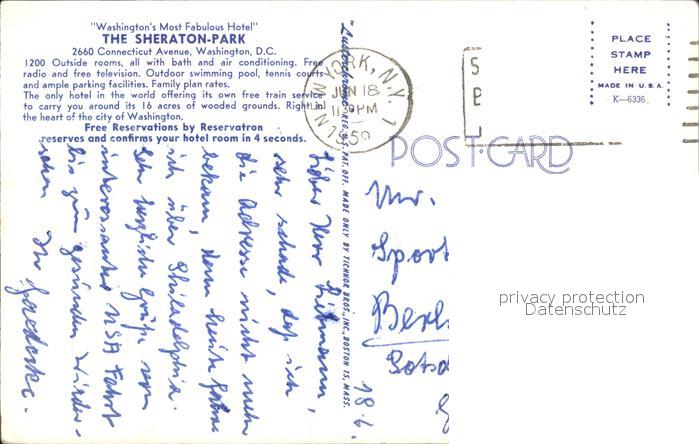 "Washington's Most Fabulous Hotel"
THE SHERATON-PARK
2660 Connecticut Avenue, Washington, D.C.
1200 Outside rooms, all with bath and air conditioning. Free
radio and free television. Outdoor swimming pool, tennis courts
and ample parking facilities. Family plan rates.
The only hotel in the world offering its own free train service
to carry you around its 16 acres of wooded grounds. Right in
the heart of the city of Washington.
Free Reservations by Reservatron
reserves and confirms your hotel room in 4 seconds.
"Lusterchrome" REG. U.S. PAT. OFF. MADE ONLY BY TICHNOR BROS., INC., BOSTON 15, MASS.
NEW YORK, N.Y. 1
JUN 18
1130PM
1959
PLACE
STAMP
HERE
MADE IN U.S.A.
K-6336
POST CARD
18.6.
Lieber Herr
sehr schade, daß ich
die Adresse nicht mehr
bekam, denn heute fahre
ich über Philadelphia.
Sehr herzliche Grüße von
interessanter USA Fahrt
bis zum gesunden Wieder-
sehen Ihr
Mr.
Sport
Berl
Potsd
privacy protection
Datenschutz